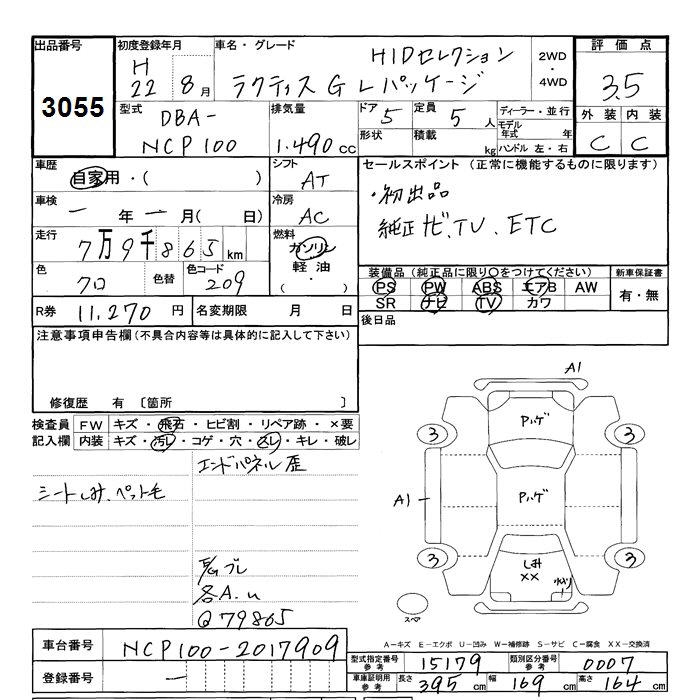 出品番号
3055
初度登録年月
H
22 8月
車名・グレード
HIDセレクション
ラクティス G Lパッケージ
2WD
・
4WD
評価点
3.5
外装 内装
C C
型式
DBA-
NCP100
排気量
1.490cc
ドア 5
形状
定員 5人
積載 kg
ディーラー・並行
モデル年式 年
ハンドル 左・右
車歴
自家用・( )
シフト
AT
車検
一年一月( 日)
冷房
AC
走行
7万9千865km
燃料
ガソリン
軽油
( ・ )
色
クロ
色替
色コード
209
R券 11,270円
名変期限 月 日
セールスポイント (正常に機能するものに限ります)
・初出品
純正ナビ、TV、ETC
装備品(純正品に限り○をつけてください)
PS PW ABS エアB AW
SR ナビ TV カワ
新車保証書
有・無
後日品
注意事項申告欄(不具合内容等は具体的に記入して下さい)
修復歴 有 〔箇所 〕
検査員
記入欄
FW キズ・飛石・ヒビ割・リペア跡・×要
内装 キズ・汚レ・コゲ・穴・スレ・キレ・破レ
エンドパネル歪
シートしみ、ペット毛
各A.u
Q79865
A1
Pハゲ
3 3
A1
Pハゲ
3 3
しみ
××
スペア
A-キズ E-エクボ U-凹み W-補修跡 S-サビ C-腐食 XX-交換済
車台番号 NCP100-2017909
登録番号 一
型式指定番号 参考 15179
類別区分番号 参考 0007
車庫証明用 参考 長さ 395cm 幅 169cm 高さ 164cm